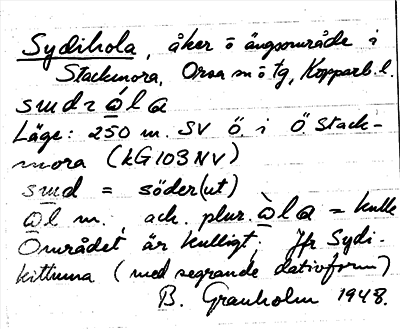 Sydihola, åker o ängsområde i
Stackmora, Orsa sn o tg, Kopparb. l.
Läge: 250 m. SV Ö. i Östack-
mora (kG103NV)
= söder(ut)
m. ack. plur. = kulle
Området är kulligt. Jfr Sydi-
kittuna (med segrande dativform)
B. Granholm 1948.